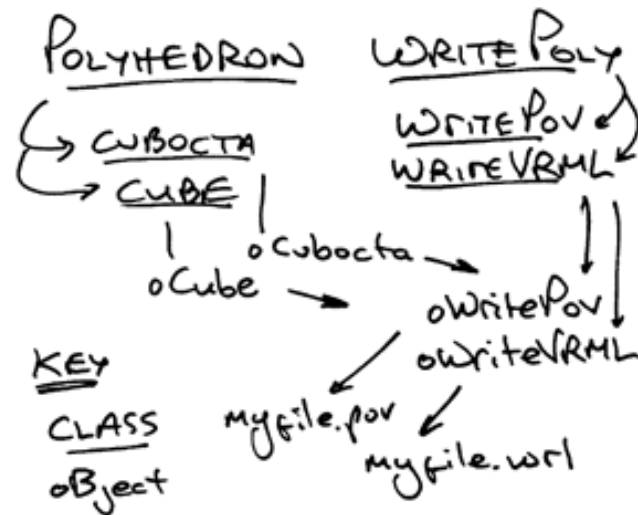 POLYHEDRON
CUBOCTA
CUBE
oCubocta
oCube
WRITEPOLY
WRITEPOV
WRITEVRML
oWritePov
oWriteVRML
myfile.pov
myfile.wrl
KEY
CLASS
oBject